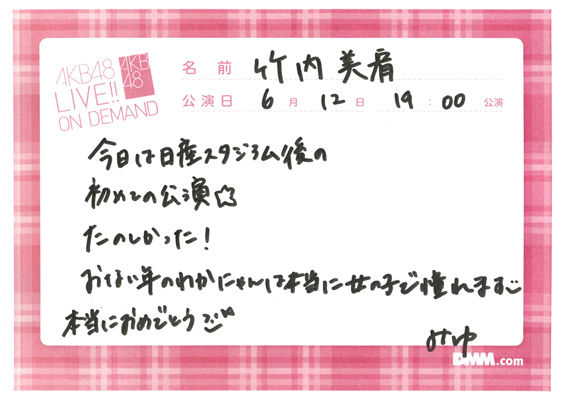 AKB48
LIVE!!
ON DEMAND
AKB
48
名前 竹内美宥
公演日 6月12日 19:00公演
今日は日産スタジアム後の
初めての公演☆
たのしかった!
おない年のわかにゃんは本当に女の子で憧れます
本当におめでとう
みゆ
DMM.com